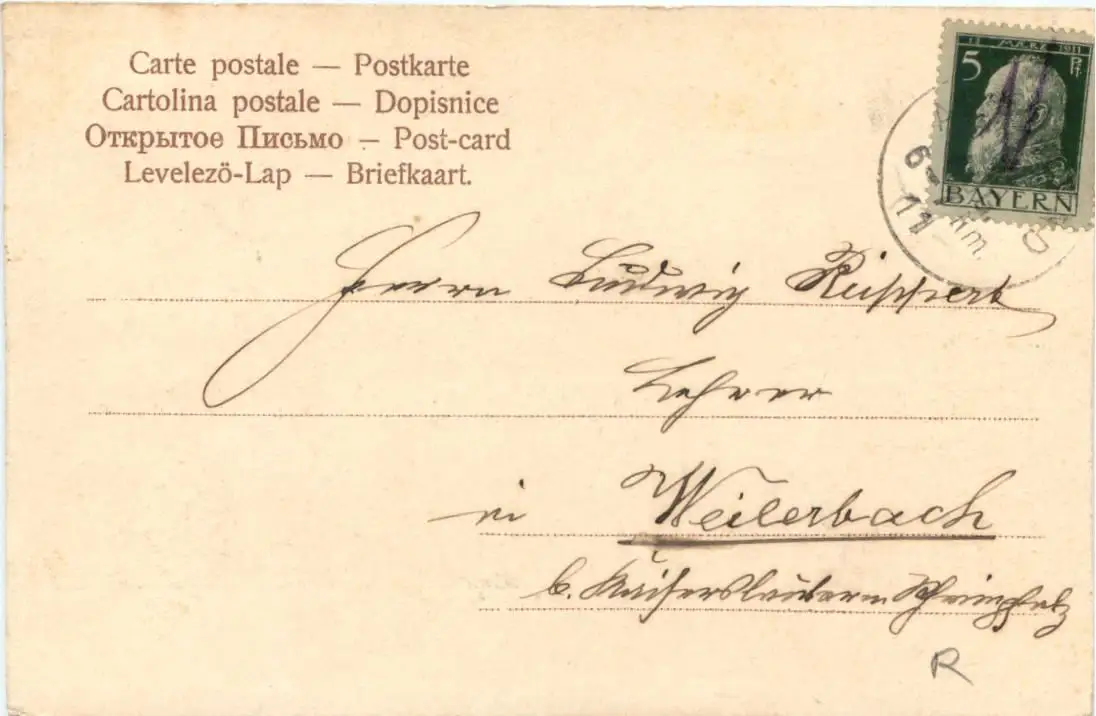 Carte postale — Postkarte
Cartolina postale — Dopisnice
Открытое Письмо — Post-card
Levelezö-Lap — Briefkaart.
12 MÄRZ 1911
5 Pf.
BAYERN
6-7 Nm.
11
Herrn Ludwig Reippert
Lehrer
in Weilerbach
b. Kaiserslautern Rheinpfalz
R